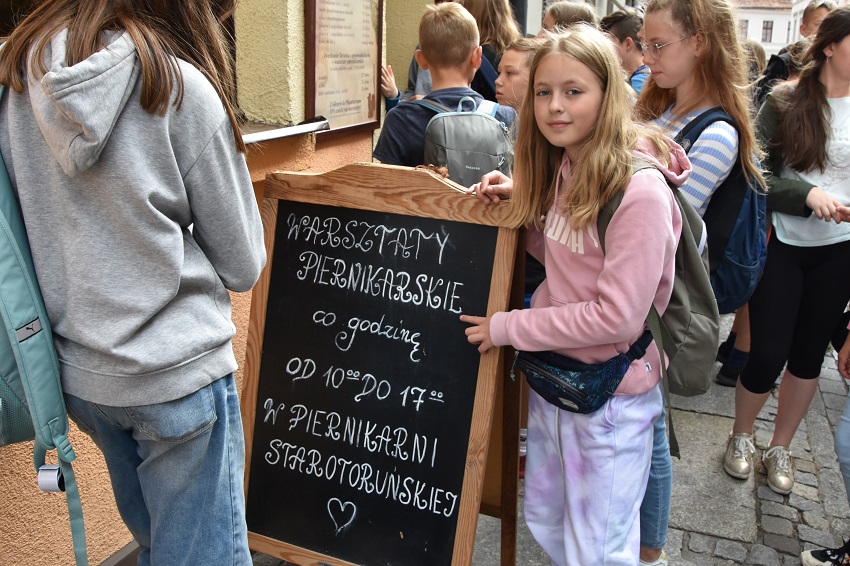 WARSZTATY
PIERNIKARSKIE
co godzinę
OD 10⁰⁰ DO 17⁰⁰
W PIERNIKARNI
STAROTORUŃSKIEJ